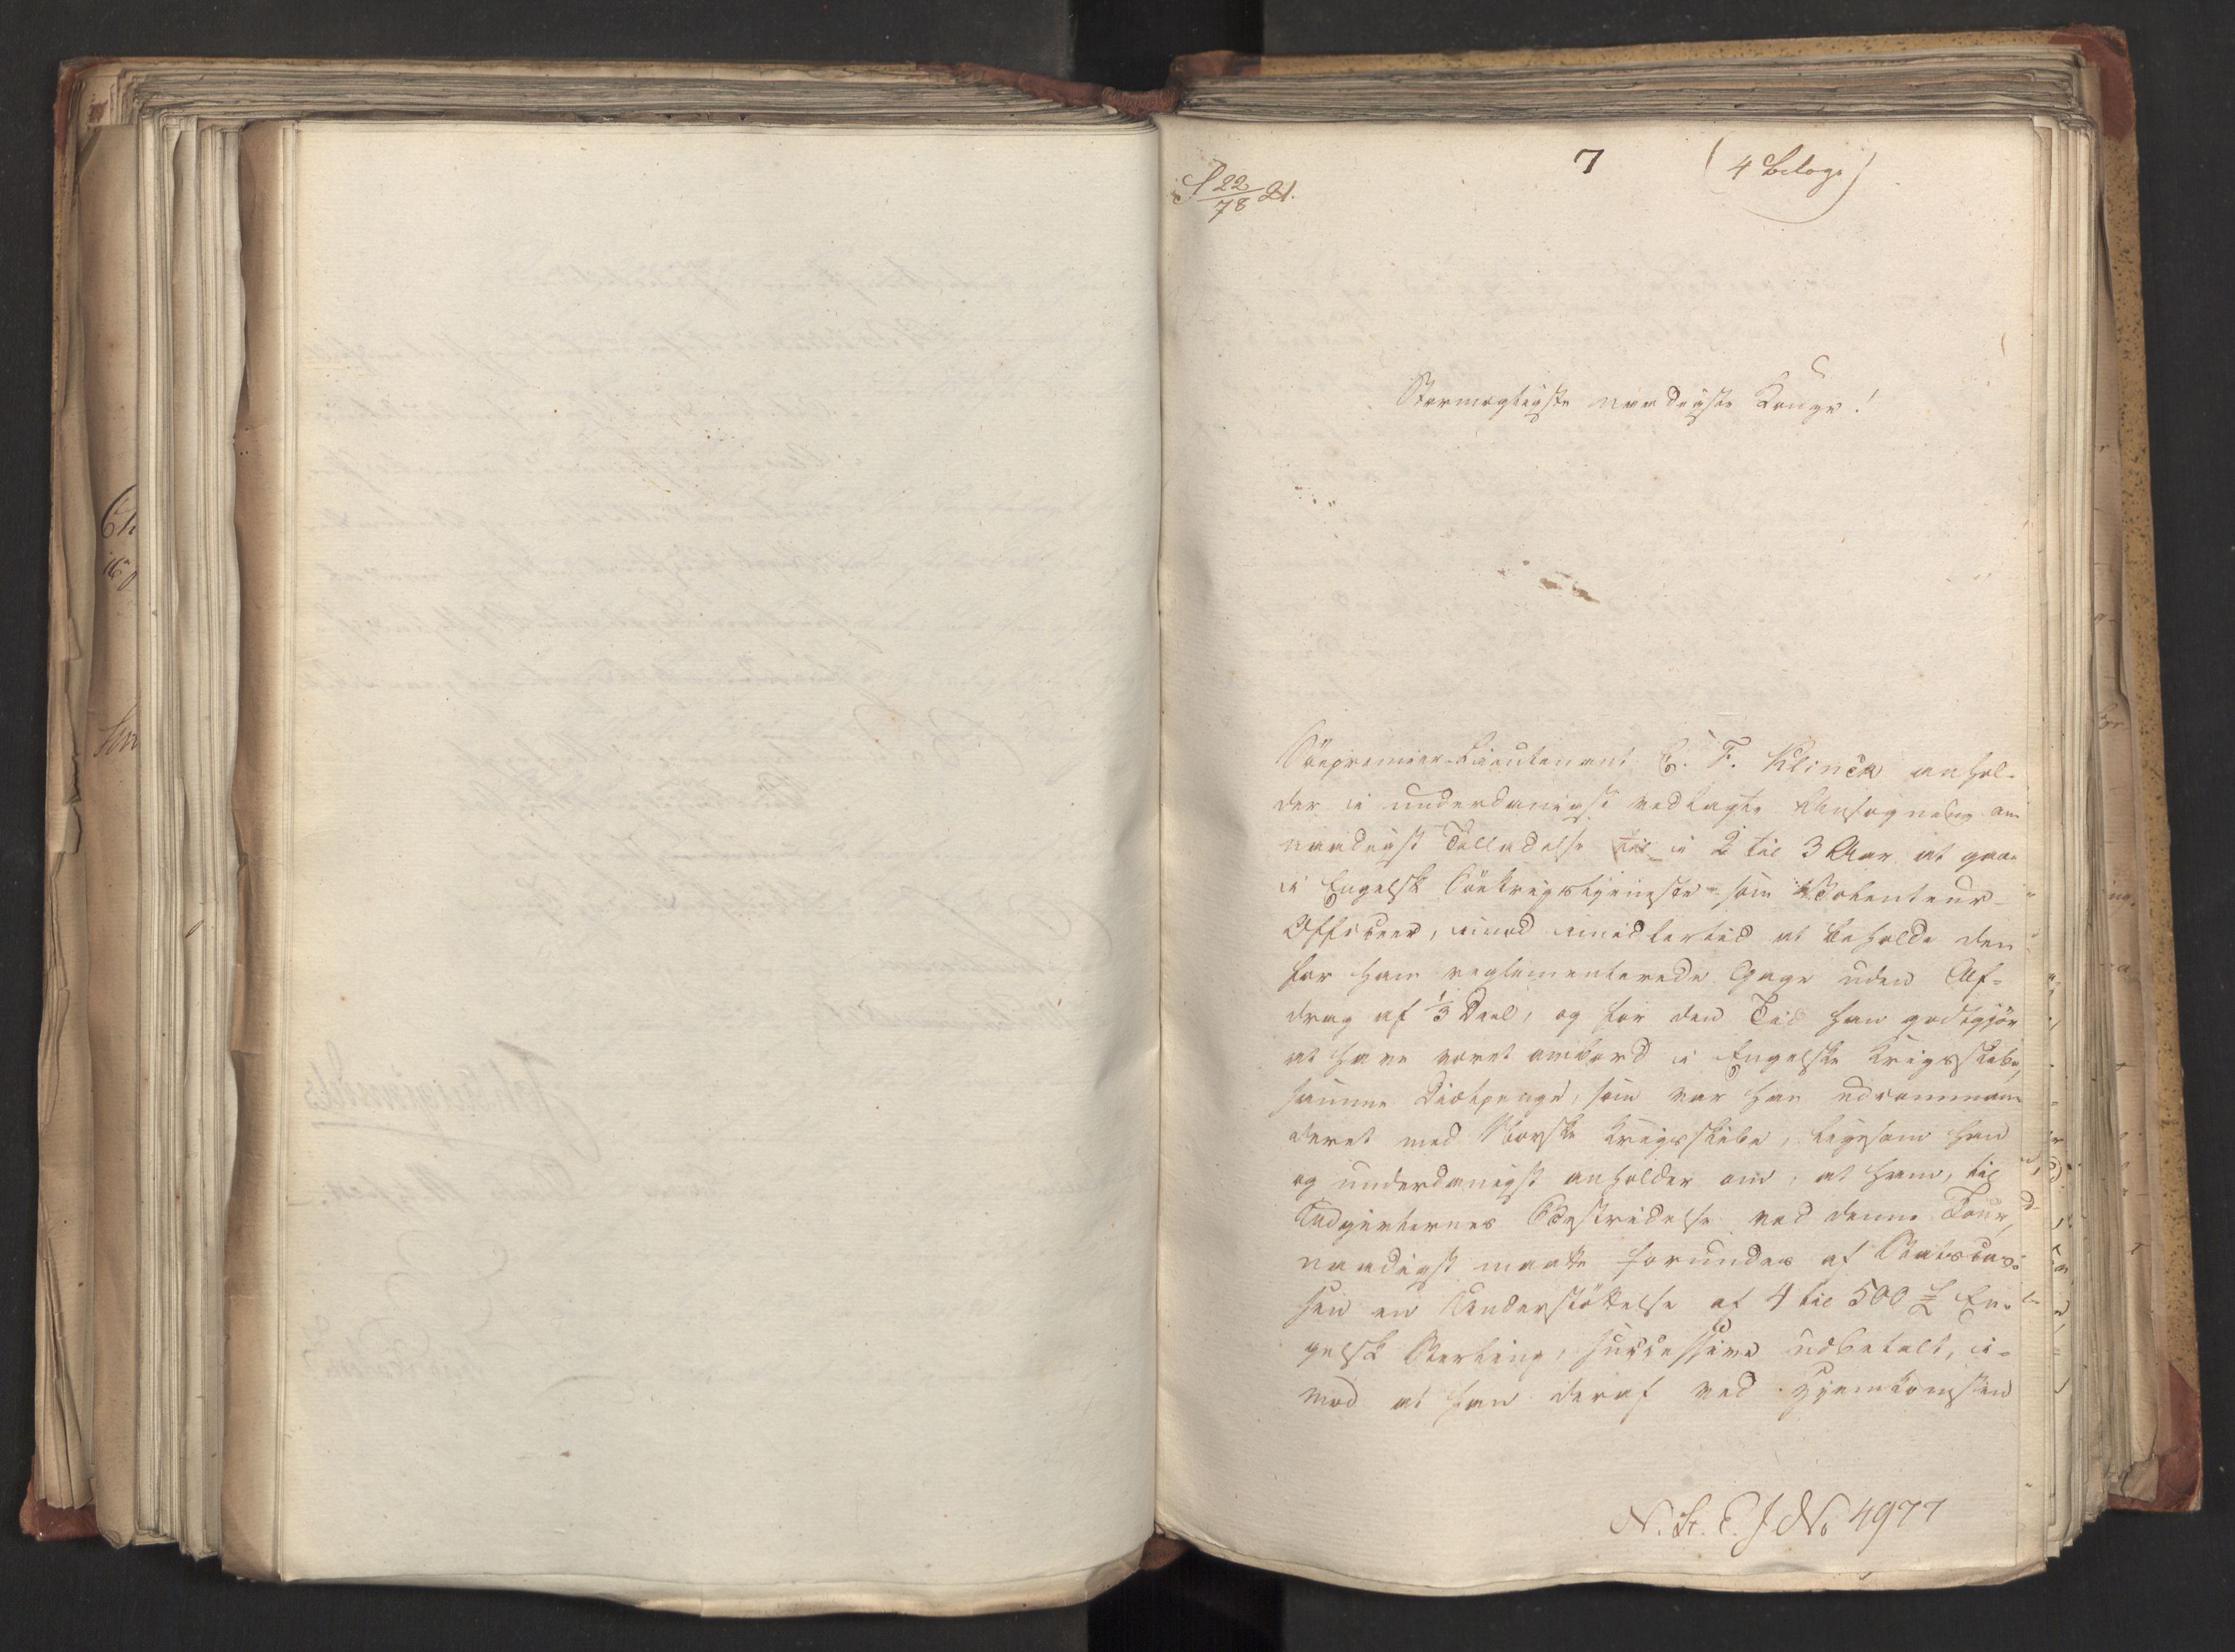 7
(4 Bilage)
22
78 21.
Stormægtigste naadigste Konge!
Söepremier-Lieutenant C. F. Klinck anhol-
der i underdanigst vedlagte Ansøgning om
naadigst Tilladelse til i 2 til 3 Aar at gaae
i Engelsk Söekrigstjeneste som Volenteur-
Officeer, imod imidlertid at beholde den
for ham reglementerede Gage uden Af-
drag af 1/3 Deel, og for den Tid han godtgjör
at have været ombord i Engelske Krigsskibe,
samme Diætpenge, som var han udcomman-
deret med Norske Krigsskibe, ligesom han
og underdanigst anholder om, at ham, til
Udgivternes Bestridelse ved denne Tour,
naadigst maatte forundes af Statscas-
sen en Understöttelse af 4 til 500 £ En-
gelsk Sterling, successive udbetalt, i-
mod at han deraf ved Hjemkomsten
N. St. E. J No 4977